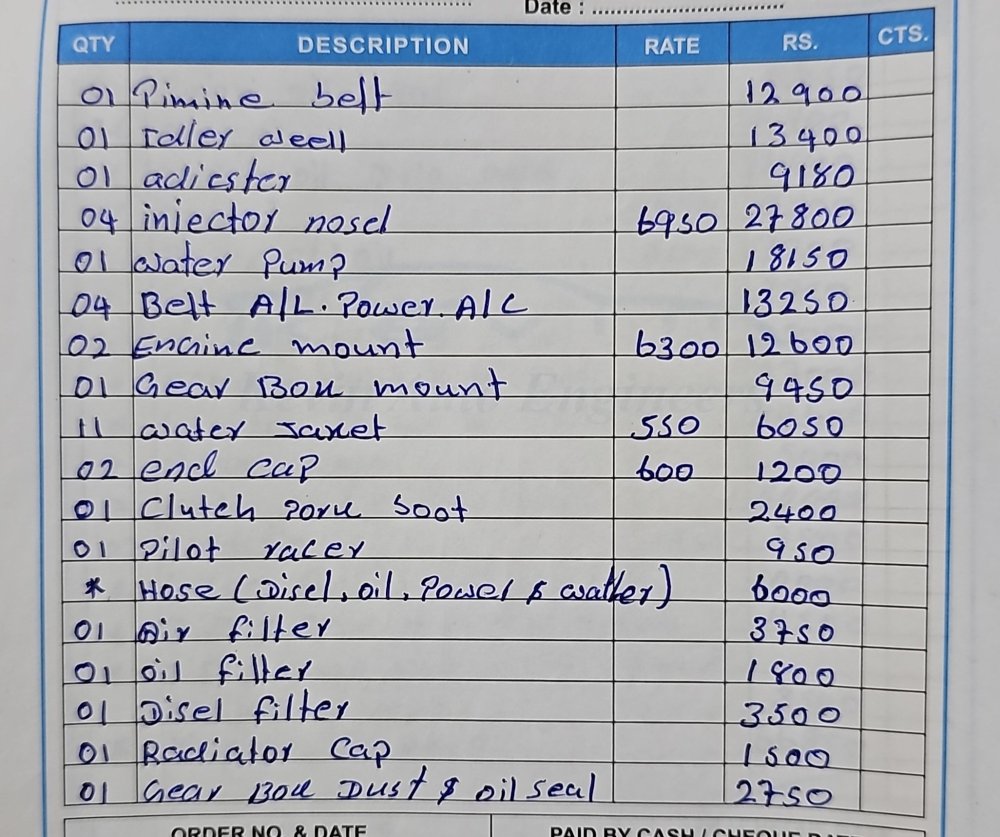 Date : ................................
QTY DESCRIPTION RATE RS. CTS.
01 Pimine belt 12900
01 Idler weell 13400
01 adiester 9180
04 injector nosel 6950 27800
01 water Pump 18150
04 Belt A/L. Power. A/C 13250
02 Engine mount 6300 12600
01 Gear Box mount 9450
11 water Jaket 550 6050
02 end cap 600 1200
01 Clutch Boot 2400
01 Pilot racer 950
* Hose (Disel, oil, Power & watter) 6000
01 Air filter 3750
01 oil filter 1800
01 Disel filter 3500
01 Radiator Cap 1500
01 Gear Box Dust & oil seal 2750
ORDER NO. & DATE PAID BY CASH / CHEQUE DATE